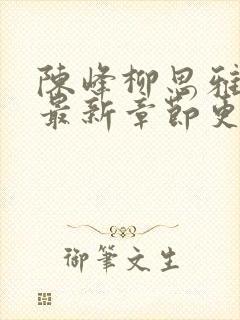 陳峰柳思雅
最新章節更
御筆文生